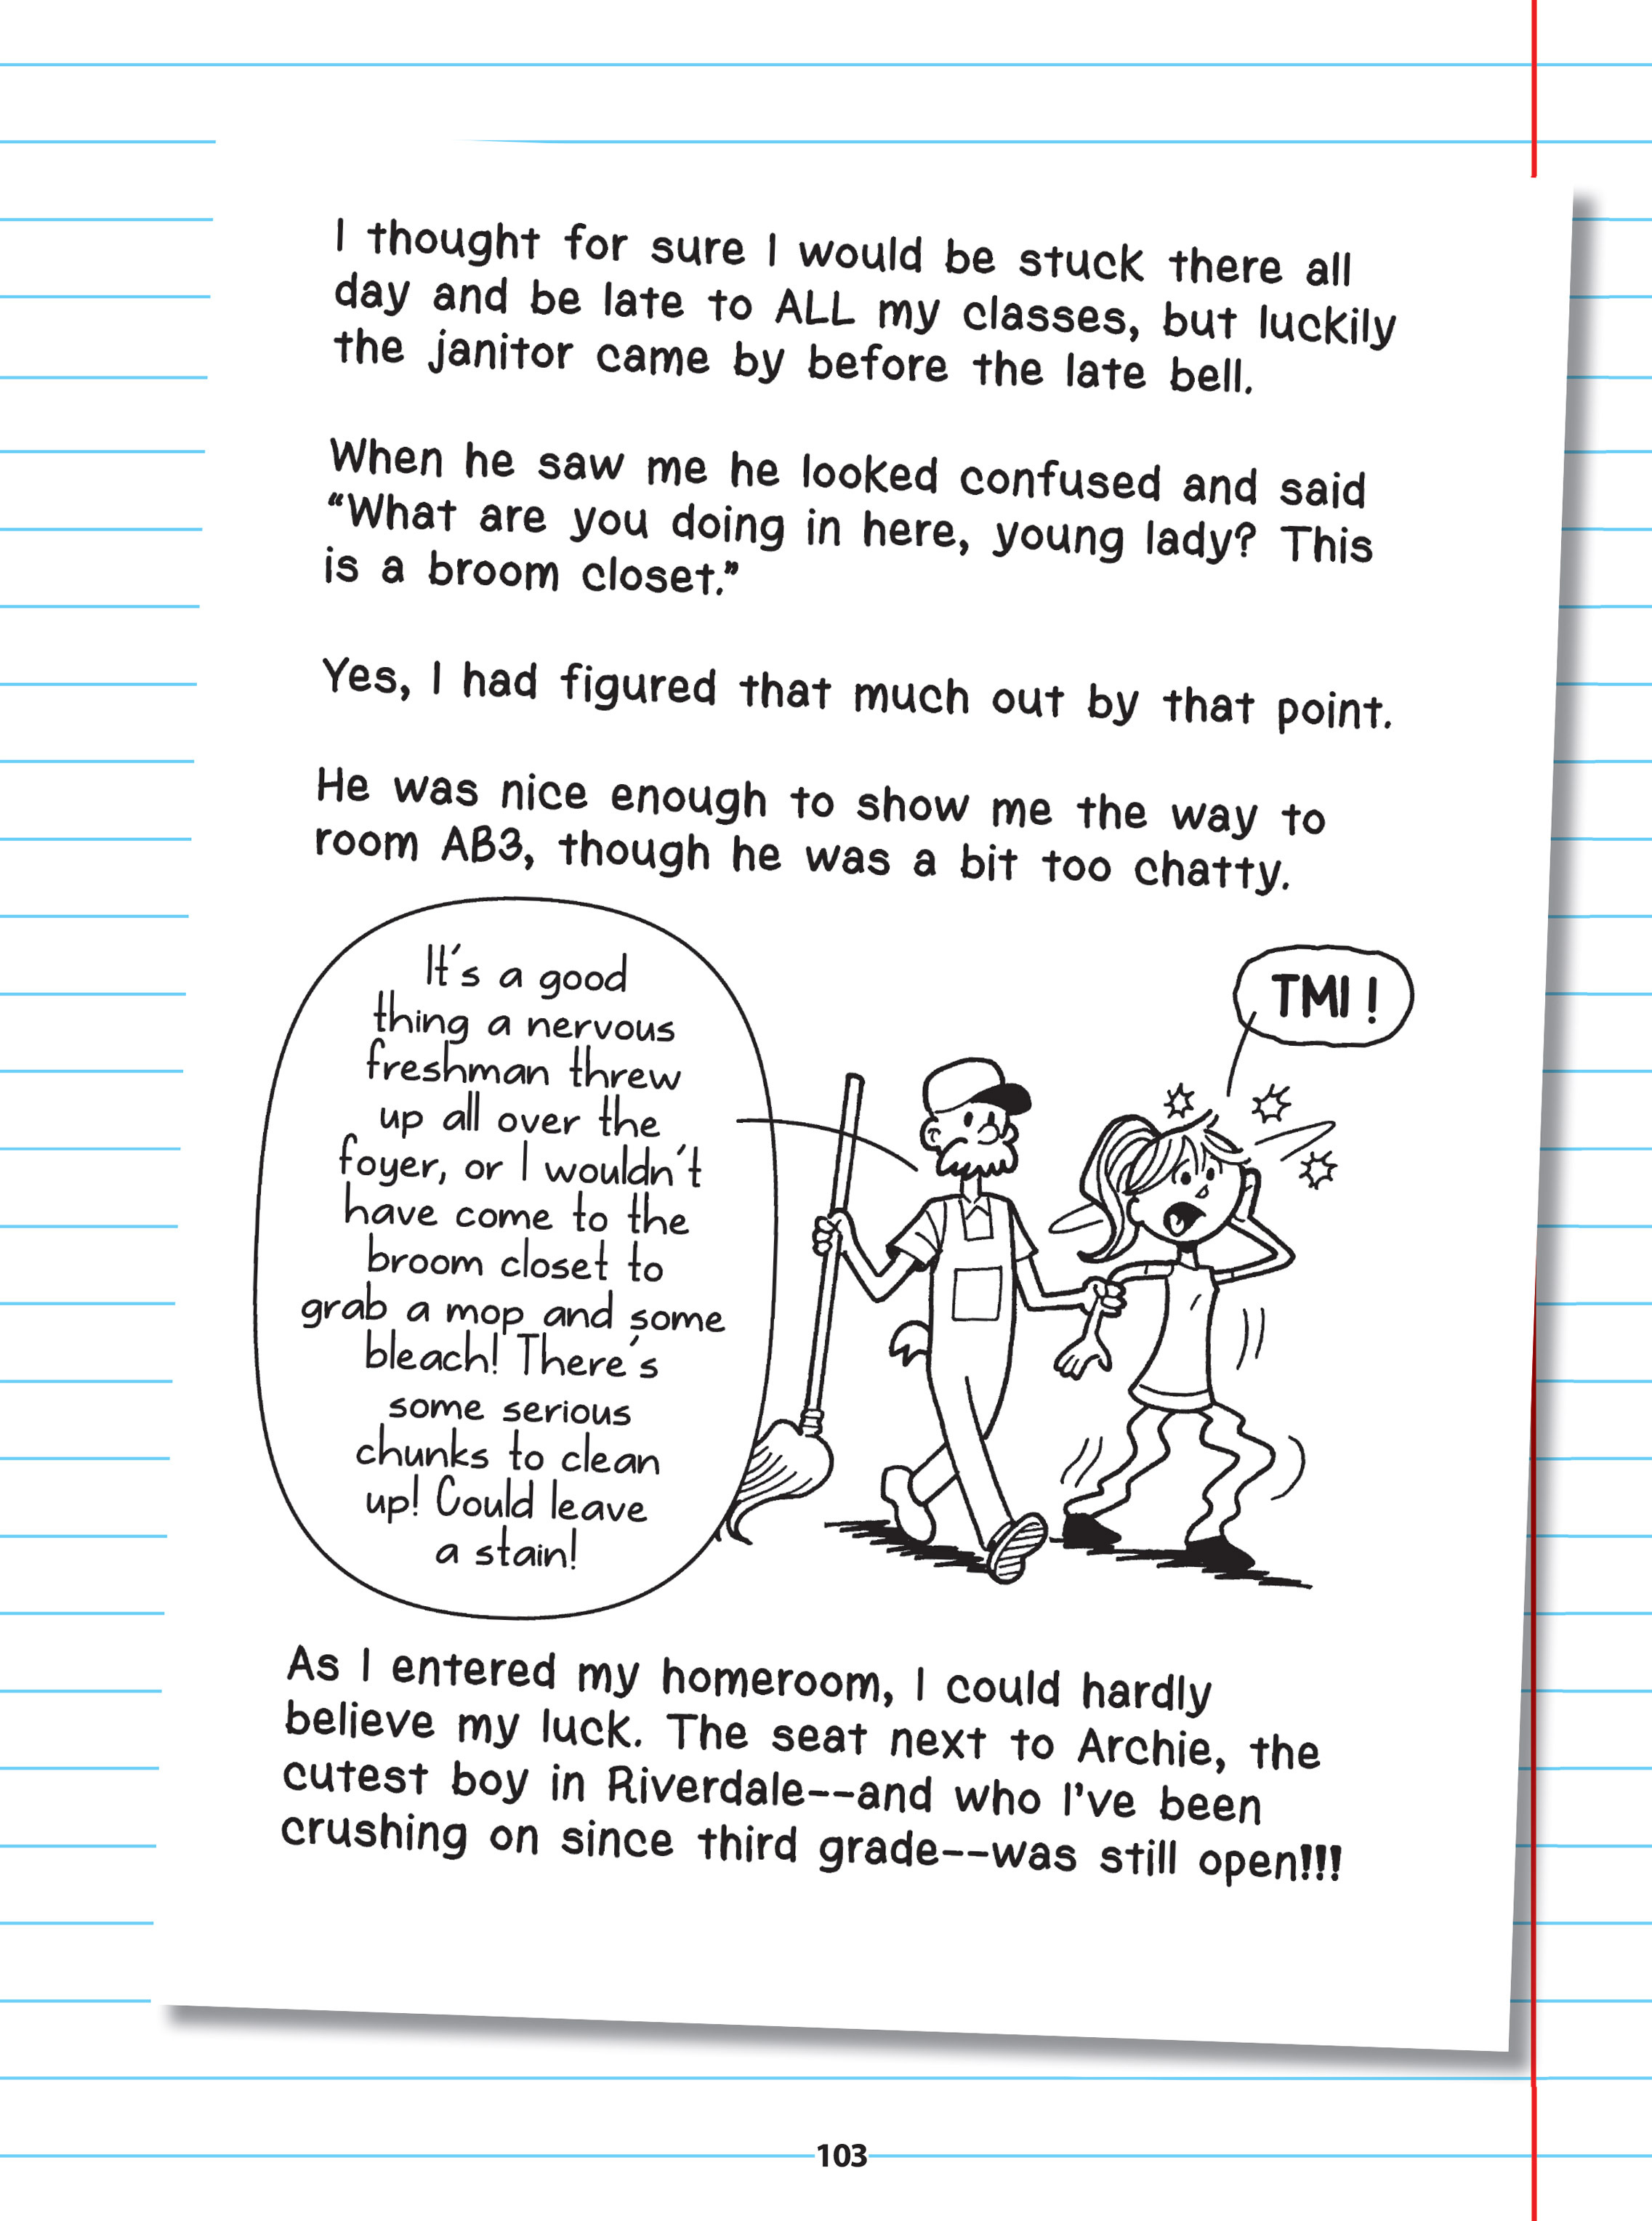 I thought for sure I would be stuck there all
day and be late to ALL my classes, but luckily
the janitor came by before the late bell.
When he saw me he looked confused and said
“What are you doing in here, young lady? This
is a broom closet.”
Yes, I had figured that much out by that point.
He was nice enough to show me the way to
room AB3, though he was a bit too chatty.
It's a good
thing a nervous
freshman threw
up all over the
foyer, or I wouldn't
have come to the
broom closet to
grab a mop and some
bleach! There's
some serious
chunks to clean
up! Could leave
a stain!
TMI!
As I entered my homeroom, I could hardly
believe my luck. The seat next to Archie, the
cutest boy in Riverdale--and who I've been
crushing on since third grade--was still open!!!
103